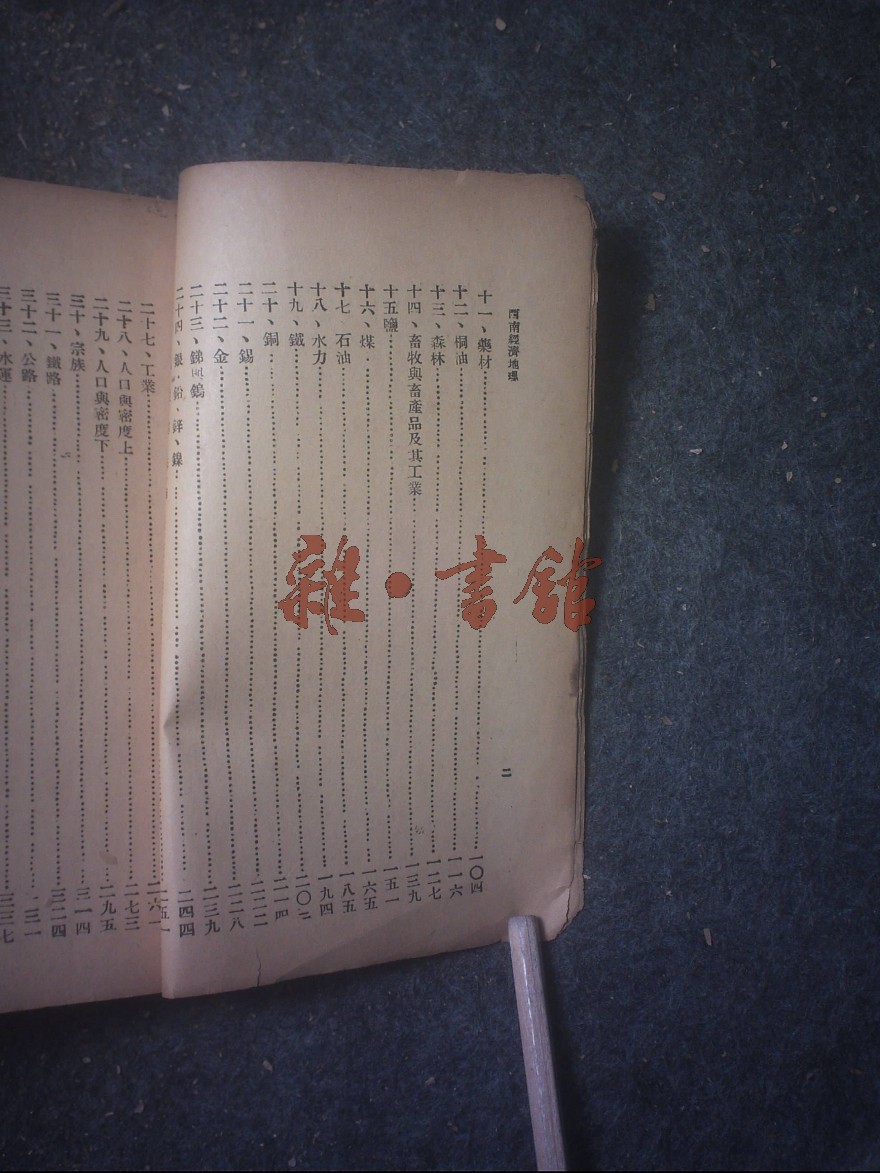 西南經濟地理
二
十一、藥材 一〇四
十二、桐油 一一六
十三、森林 一二七
十四、畜牧與畜產品及其工業 一三九
十五鹽 一五一
十六、煤 一六五
十七 石油 一八五
十八、水力 一九四
十九、鐵 二〇
二十、銅 二一
二十一、錫 二二二
二十二、金 二二八
二十三、銻與鎢 二三九
二十四、銀、鉛、鋅、鎳 二四四
二十七、工業 二六
二十八、人口與密度上 二七三
二十九、人口與密度下 二九五
三十、宗族 三一四
三十一、鐵路 三二四
三十二、公路
三十三、水運 三三七
雜·書館